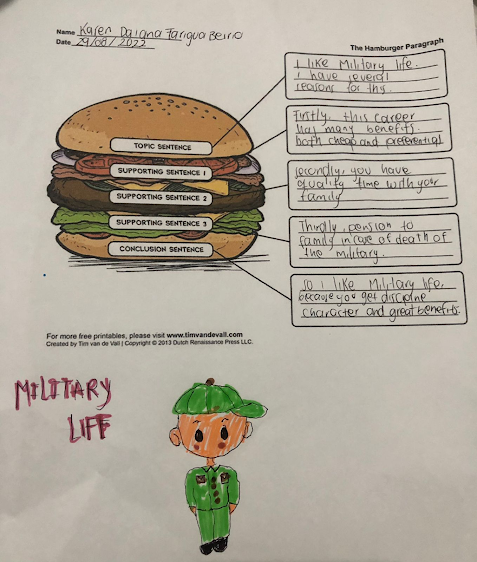 Name Karen Daiana Farigua Beirio
Date 29/08/2022
The Hamburger Paragraph
I like Military life.
i have several
reasons for thy.
Firstly, this career
has many benefits
both cheap and preferential
secondly, you have
quality time with your
family
Thirdly, pension to
family in case of death of
the military.
so I like Military life,
because you get discipline
character and great benefits.
TOPIC SENTENCE
SUPPORTING SENTENCE 1
SUPPORTING SENTENCE 2
SUPPORTING SENTENCE 3
CONCLUSION SENTENCE
For more free printables, please visit www.timvandevall.com
Created by Tim van de Vall | Copyright © 2013 Dutch Renaissance Press LLC.
MILITARY
LIFE